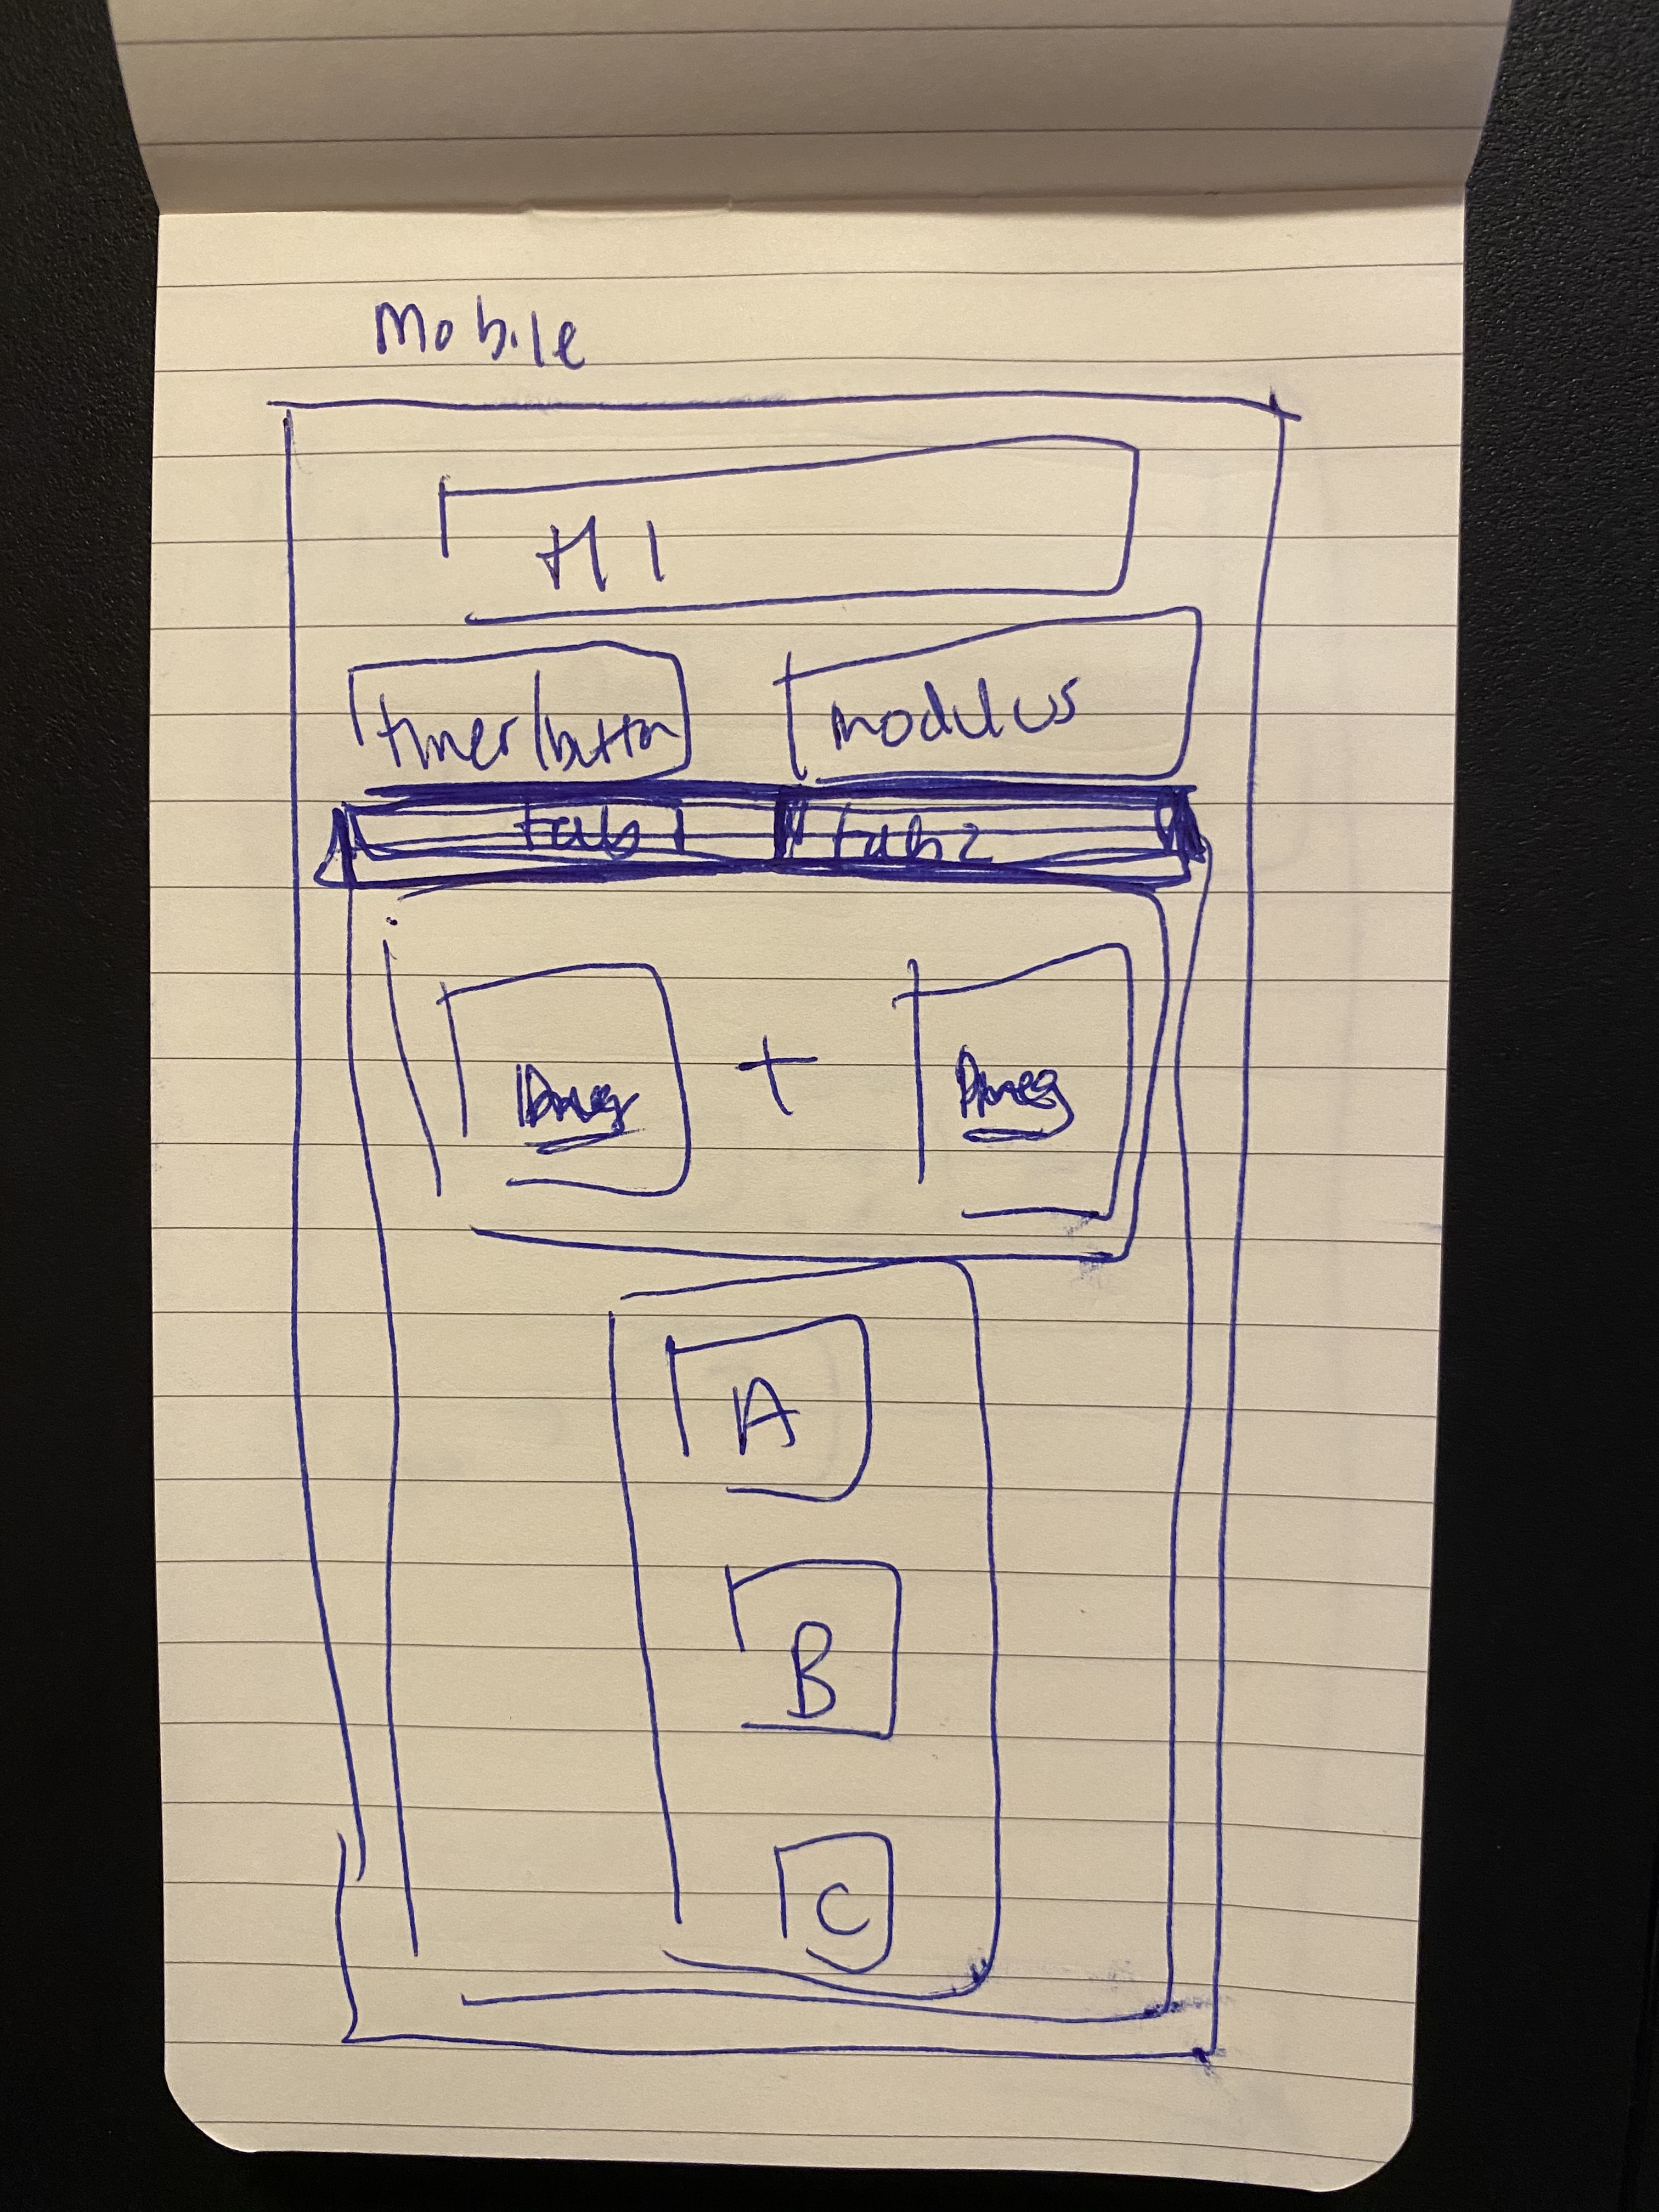 Mobile
H1
timer/button
modulus
tab1
tab2
+
A
B
C